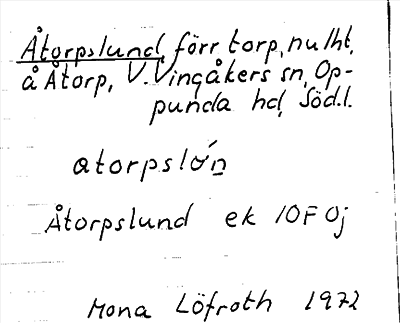 Åtorpslund, förr torp, nu lht,
å Åtorp, V. Vingåkers sn, Op-
punda hd, Södl.
atorpsløn
Åtorpslund ek 10F 0j
Mona Löfroth 1972